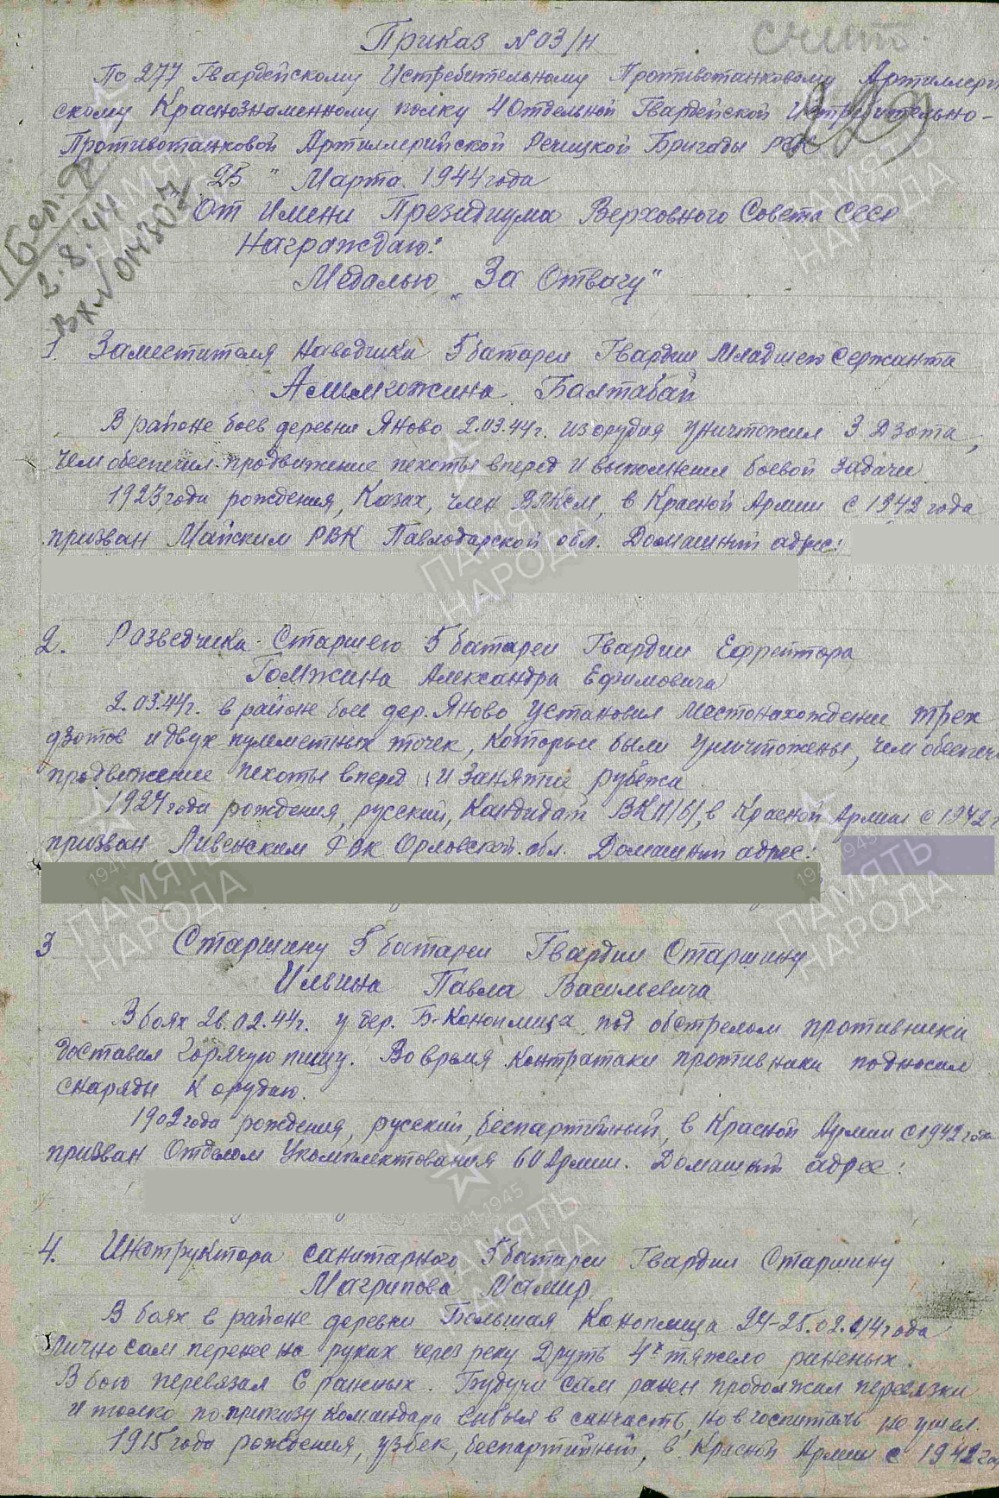 счит.
Приказ №03/н
По 277 Гвардейскому Истребительному Противотанковому Артиллерий
скому Краснознаменному полку 4 Отдельной Гвардейской Истребительно-
Противотанковой Артиллерийской Речицкой Бригады РГК
25 " Марта 1944 года
От Имени Президиума Верховного Совета СССР
Награждаю:
Медалью „За Отвагу"
2.8.44
Вх№ 014307
1. Заместителя Наводчика 5 батареи Гвардии Младшего Сержанта
Алимкожина Балтабай
В районе боев деревни Яново 2.03.44г. из орудия уничтожил 3 Дзота,
чем обеспечил продвижение пехоты вперед и выполнение боевой задачи
1923 года рождения, Казах, член ВЛКСМ, в Красной Армии с 1942 года
призван Майским РВК Павлодарской обл. Домашний адрес:
2. Разведчика-Старшего 5 батареи Гвардии Ефрейтора
Гомжина Александра Ефимовича
2.03.44г. в районе боев дер. Яново, установил местонахождение трех
дзотов и двух пулеметных точек, которые были уничтожены, чем обеспечил
продвижение пехоты вперед и занятие рубежа
1924 года рождения, русский, Кандидат ВКП/б/, в Красной Армии с 1942 г
призван Ливенским РВК Орловской обл. Домашний адрес:
3 Старшину 5 батареи Гвардии Старшину
Ильина Павла Васильевича
В боях 26.02.44г. у дер. Б-Коноплица под обстрелом противника
доставил горячую пищу. Во время контратаки противника подносил
снаряды к орудию.
1902 года рождения, русский, беспартийный, в Красной Армии с 1942 года
призван Отделом Укомплектования 60 Армии. Домашний адрес:
4. Инструктора санитарного 5 батареи Гвардии Старшину
Магрипова Мамир
В боях в районе деревни Большая Коноплица 24-25.02.44 года
Лично сам перенес на руках через реку Друть 4х тяжело раненых.
В бою перевязал 6 раненых. Будучи сам ранен продолжал перевязки
и только по приказу командира выбыл в санчасть, но в госпиталь не ушел.
1915 года рождения, узбек, беспартийный, в Красной Армии с 1942 год
1941-1945
ПАМЯТЬ
НАРОДА